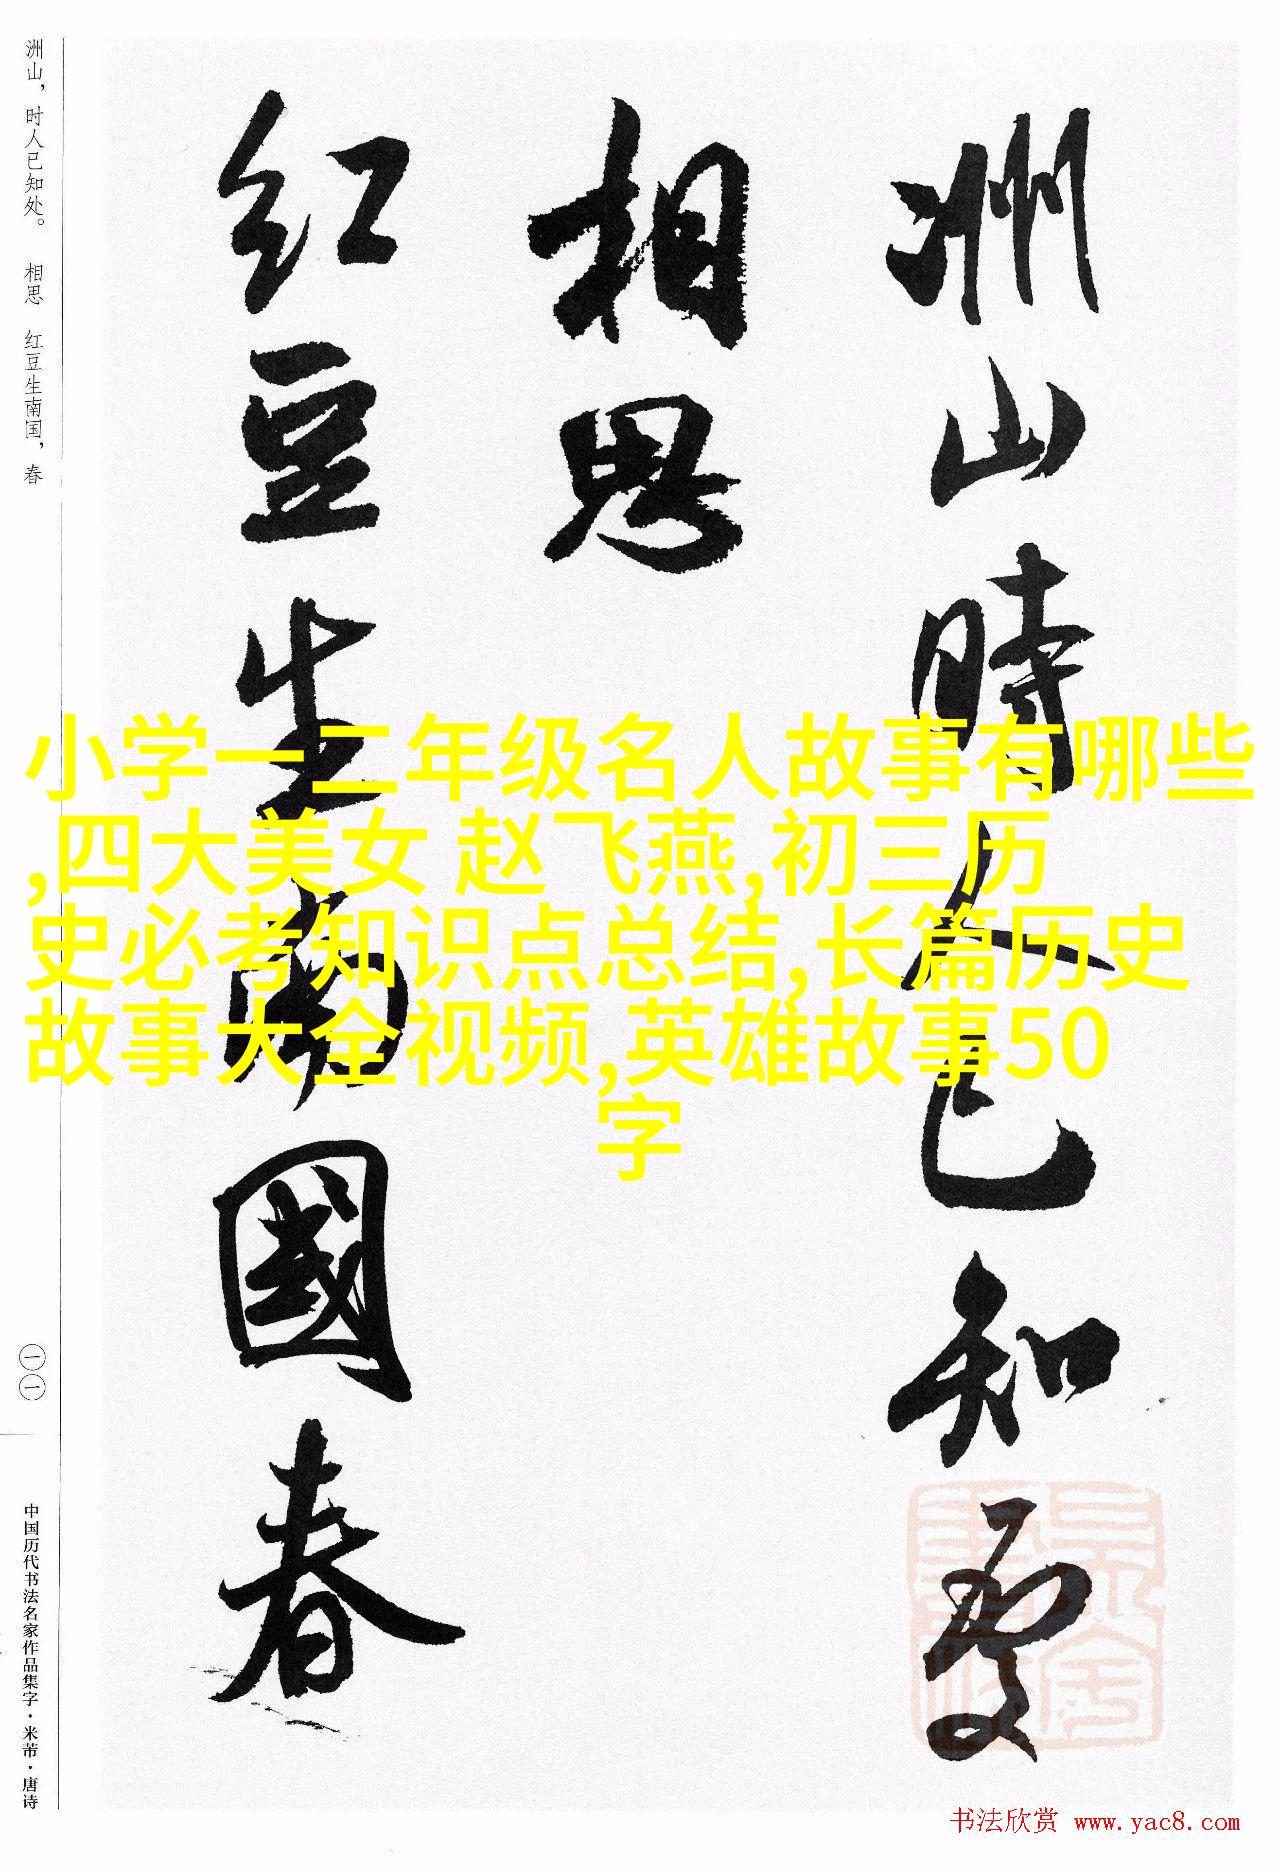 洲山時人已知處
相思
红豆生南國春
洲山，时人已知处。 相思 红豆生南国，春
一一
中国历代书法名家作品集字·米芾·唐诗
小学一二年级名人故事有哪些
,四大美女 赵飞燕,初三历
史必考知识点总结,长篇历史
故事大全视频,英雄故事50
字
书法欣赏 www.yac8.com